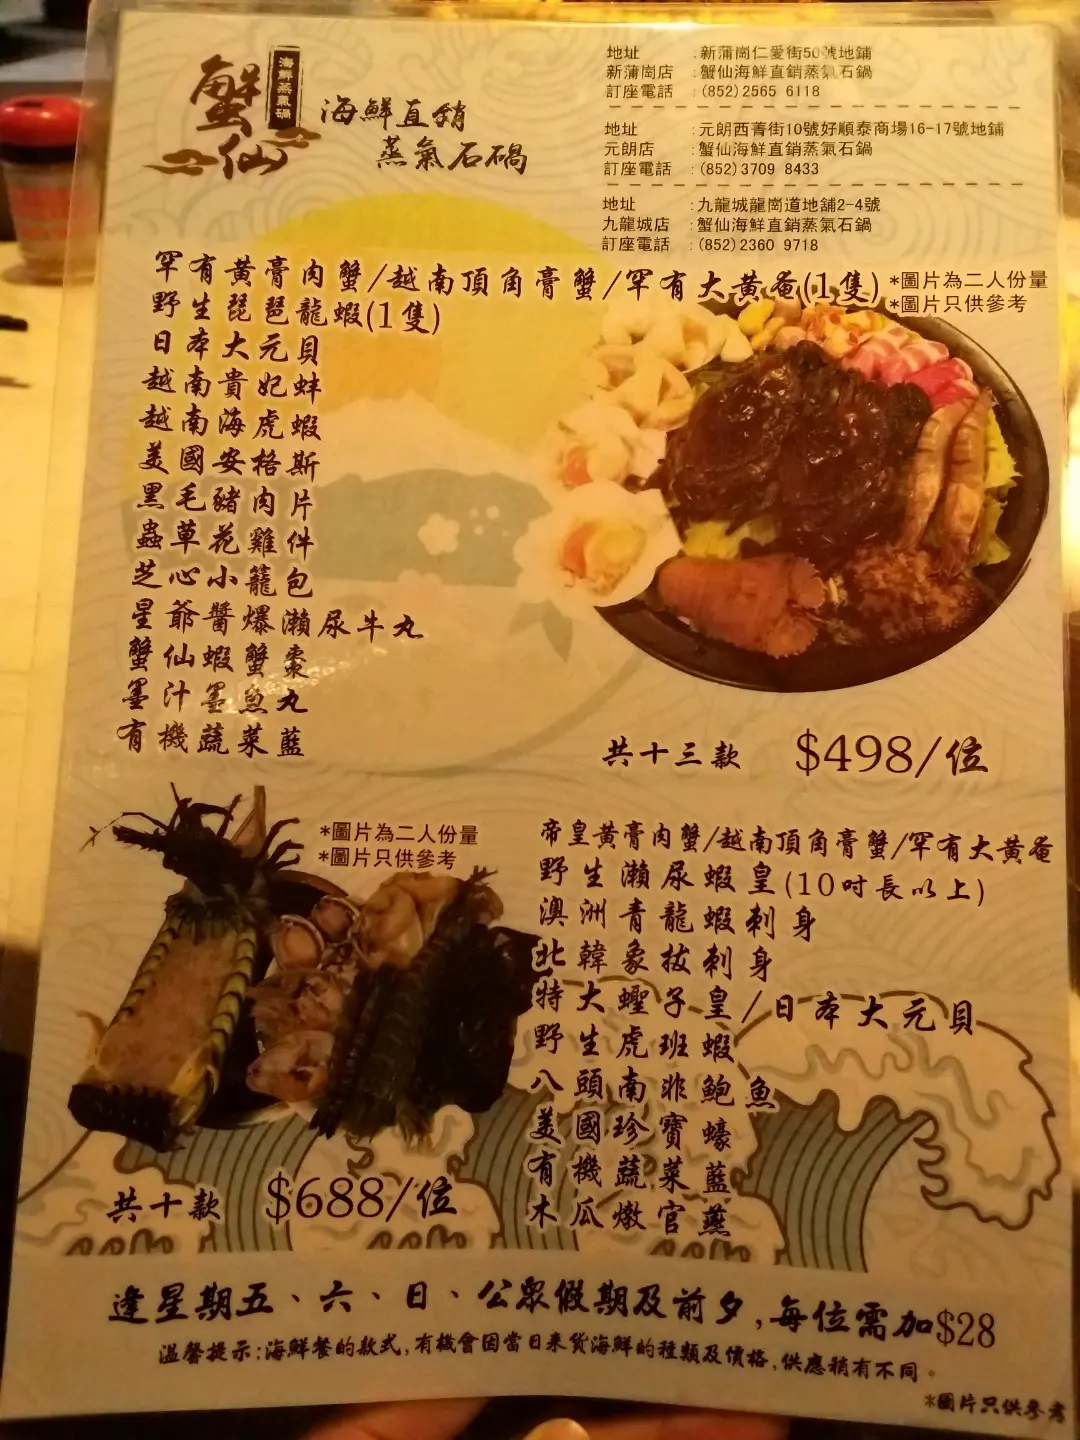 蟹仙
海鮮蒸氣石鍋
海鮮直銷
蒸氣石鍋
地址 :新蒲崗仁愛街50號地鋪
新蒲崗店 :蟹仙海鮮直銷蒸氣石鍋
訂座電話 :(852)2565 6118
地址 :元朗西菁街10號好順泰商場16-17號地鋪
元朗店 :蟹仙海鮮直銷蒸氣石鍋
訂座電話 :(852)3709 8433
地址 :九龍城龍崗道地舖2-4號
九龍城店 :蟹仙海鮮直銷蒸氣石鍋
訂座電話 :(852)2360 9718
罕有黃膏肉蟹/越南頂角膏蟹/罕有大黃奄(1隻)
*圖片為二人份量
*圖片只供參考
野生琵琶龍蝦(1隻)
日本大元貝
越南貴妃蚌
越南海虎蝦
美國安格斯
黑毛豬肉片
蟲草花雞件
芝心小籠包
星爺醬爆瀨尿牛丸
蟹仙蝦蟹棗
墨汁墨魚丸
有機蔬菜藍
共十三款 $498/位
*圖片為二人份量
*圖片只供參考
帝皇黃膏肉蟹/越南頂角膏蟹/罕有大黃奄
野生瀨尿蝦皇(10吋長以上)
澳洲青龍蝦刺身
北韓象拔刺身
特大蟶子皇/日本大元貝
野生虎班蝦
八頭南非鮑魚
美國珍寶蠔
有機蔬菜藍
木瓜燉官燕
共十款 $688/位
逢星期五、六、日、公眾假期及前夕,每位需加$28
溫馨提示:海鮮餐的款式,有機會因當日來貨海鮮的種類及價格,供應稍有不同。
*圖片只供參考